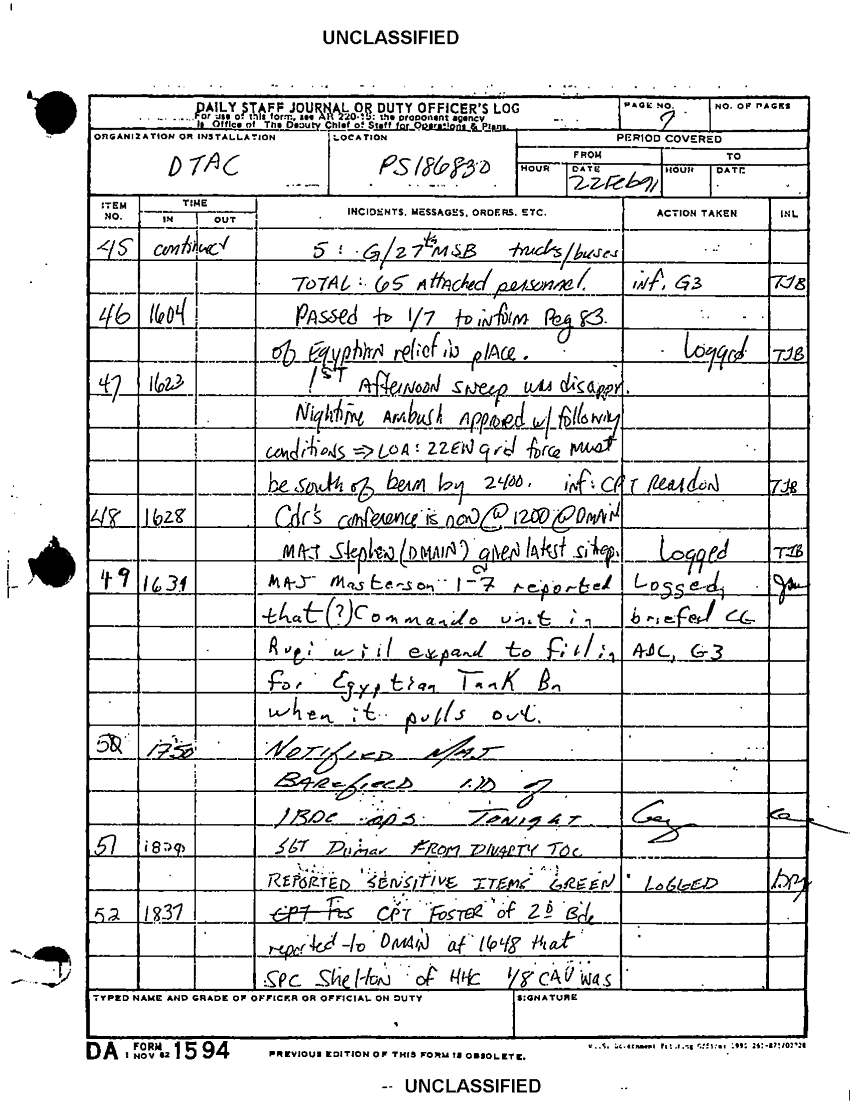 UNCLASSIFIED
DAILY STAFF JOURNAL OR DUTY OFFICER'S LOG
For use of this form, see AR 220-15; the proponent agency
is Office of The Deputy Chief of Staff for Operations & Plans.
PAGE NO.
7
NO. OF PAGES
ORGANIZATION OR INSTALLATION
DTAC
LOCATION
PS186830
PERIOD COVERED
FROM
TO
HOUR
DATE
22Feb91
HOUR
DATE
ITEM NO.
TIME
IN
OUT
INCIDENTS, MESSAGES, ORDERS, ETC.
ACTION TAKEN
INL
45 continued 5: G/27th MSB trucks/buses
TOTAL: 65 Attached personnel. inf. G3 TJB
46 1604 Passed to 1/7 to inform Reg 83.
of Egyptian relief in place. Logged TJB
47 1623 1ST Afternoon sweep was disappr.
Nightime Ambush Approved w/ following
conditions => LOA: 22EW grid force must
be south of berm by 2400. inf: CPT Reardon TJB
48 1628 Cdr's conference is now @ 1200 @ DMAIN
MAJ Stephen (DMAIN) given latest sitrep. Logged TJB
49 1631 MAJ Masterson 1-7 reported Logged,
that (?) Commando unit in briefed CG
Ruqi will expand to fill in ADC, G3
for Egyptian Tank Bn
when it pulls out.
50 1750 NOTIFIED MAJ
BAREFIELD of
1BDE OPS TONIGHT
51 SGT FROM DIVARTY TOC
REPORTED SENSITIVE ITEMS GREEN LOGGED
52 1837 CPT Fos CPT FOSTER of 2D Bde
reported to DMAIN at 1648 that
SPC Shelton of HHC 1/8 CAV was
TYPED NAME AND GRADE OF OFFICER OR OFFICIAL ON DUTY
SIGNATURE
DA FORM 1 NOV 62 1594
PREVIOUS EDITION OF THIS FORM IS OBSOLETE.
UNCLASSIFIED